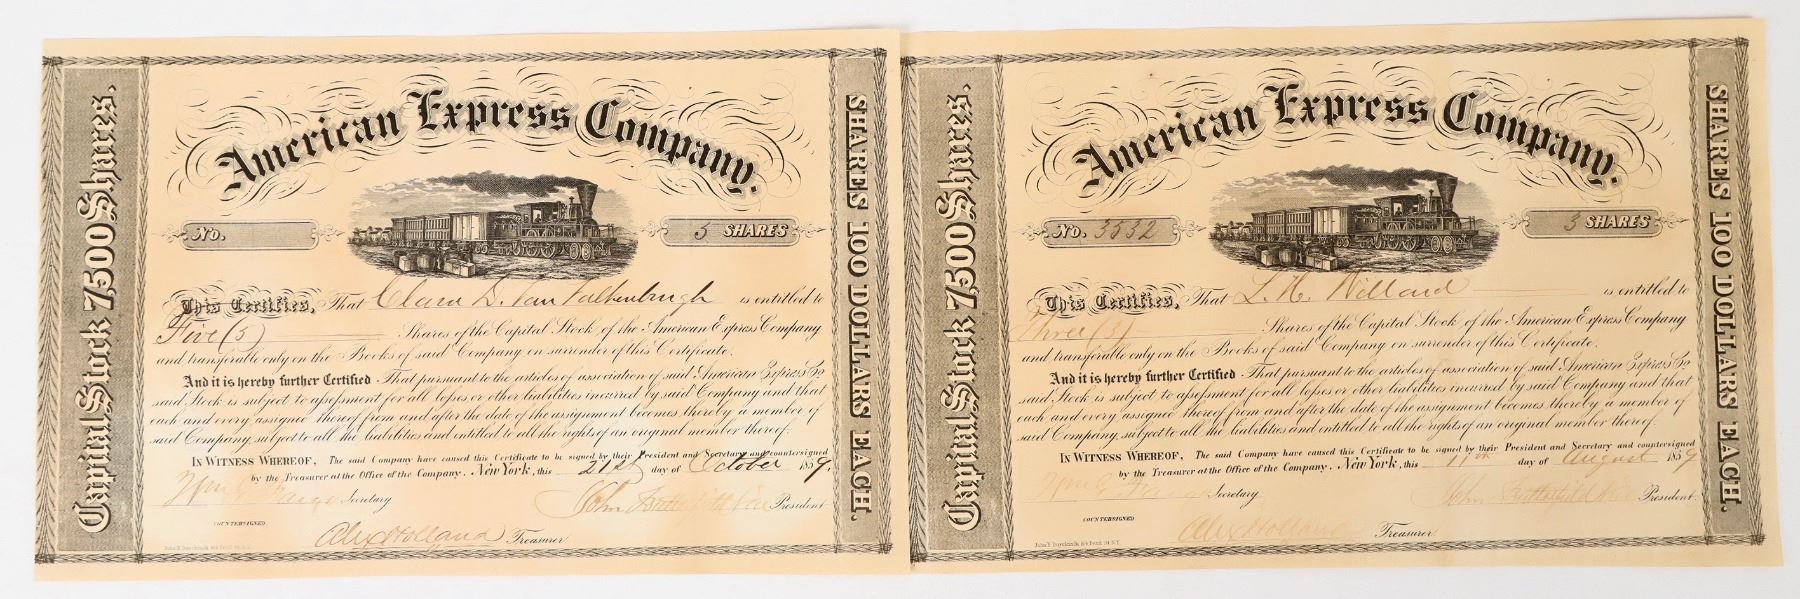 Capital Stock 7,500 Shares.
American Express Company.
No.
5 SHARES
This Certifies, That Clara D. Van Valkenburgh is entitled to
Five (5) Shares of the Capital Stock of the American Express Company
and transferable only on the Books of said Company on surrender of this Certificate.
And it is hereby further Certified That pursuant to the articles of association of said American Express Co
said Stock is subject to assessment for all losses or other liabilities incurred by said Company and that
each and every assignee thereof from and after the date of the assignment becomes thereby a member of
said Company, subject to all the liabilities and entitled to all the rights of an original member thereof.
IN WITNESS WHEREOF, The said Company have caused this Certificate to be signed by their President and Secretary and countersigned
by the Treasurer at the Office of the Company. New York, this 21st day of October 1859.
Wm G Fargo Secretary
John Butterfield Vice President
COUNTERSIGNED
Alex Holland Treasurer
SHARES 100 DOLLARS EACH.
Capital Stock 7,500 Shares.
American Express Company.
No. 3532
3 SHARES
This Certifies, That L. H. Willard is entitled to
Three (3) Shares of the Capital Stock of the American Express Company
and transferable only on the Books of said Company on surrender of this Certificate.
And it is hereby further Certified That pursuant to the articles of association of said American Express Co
said Stock is subject to assessment for all losses or other liabilities incurred by said Company and that
each and every assignee thereof from and after the date of the assignment becomes thereby a member of
said Company, subject to all the liabilities and entitled to all the rights of an original member thereof.
IN WITNESS WHEREOF, The said Company have caused this Certificate to be signed by their President and Secretary and countersigned
by the Treasurer at the Office of the Company. New York, this 11th day of August 1859
Wm G Secretary
John Butterfield Vice President
COUNTERSIGNED
Alex Holland Treasurer
SHARES 100 DOLLARS EACH.